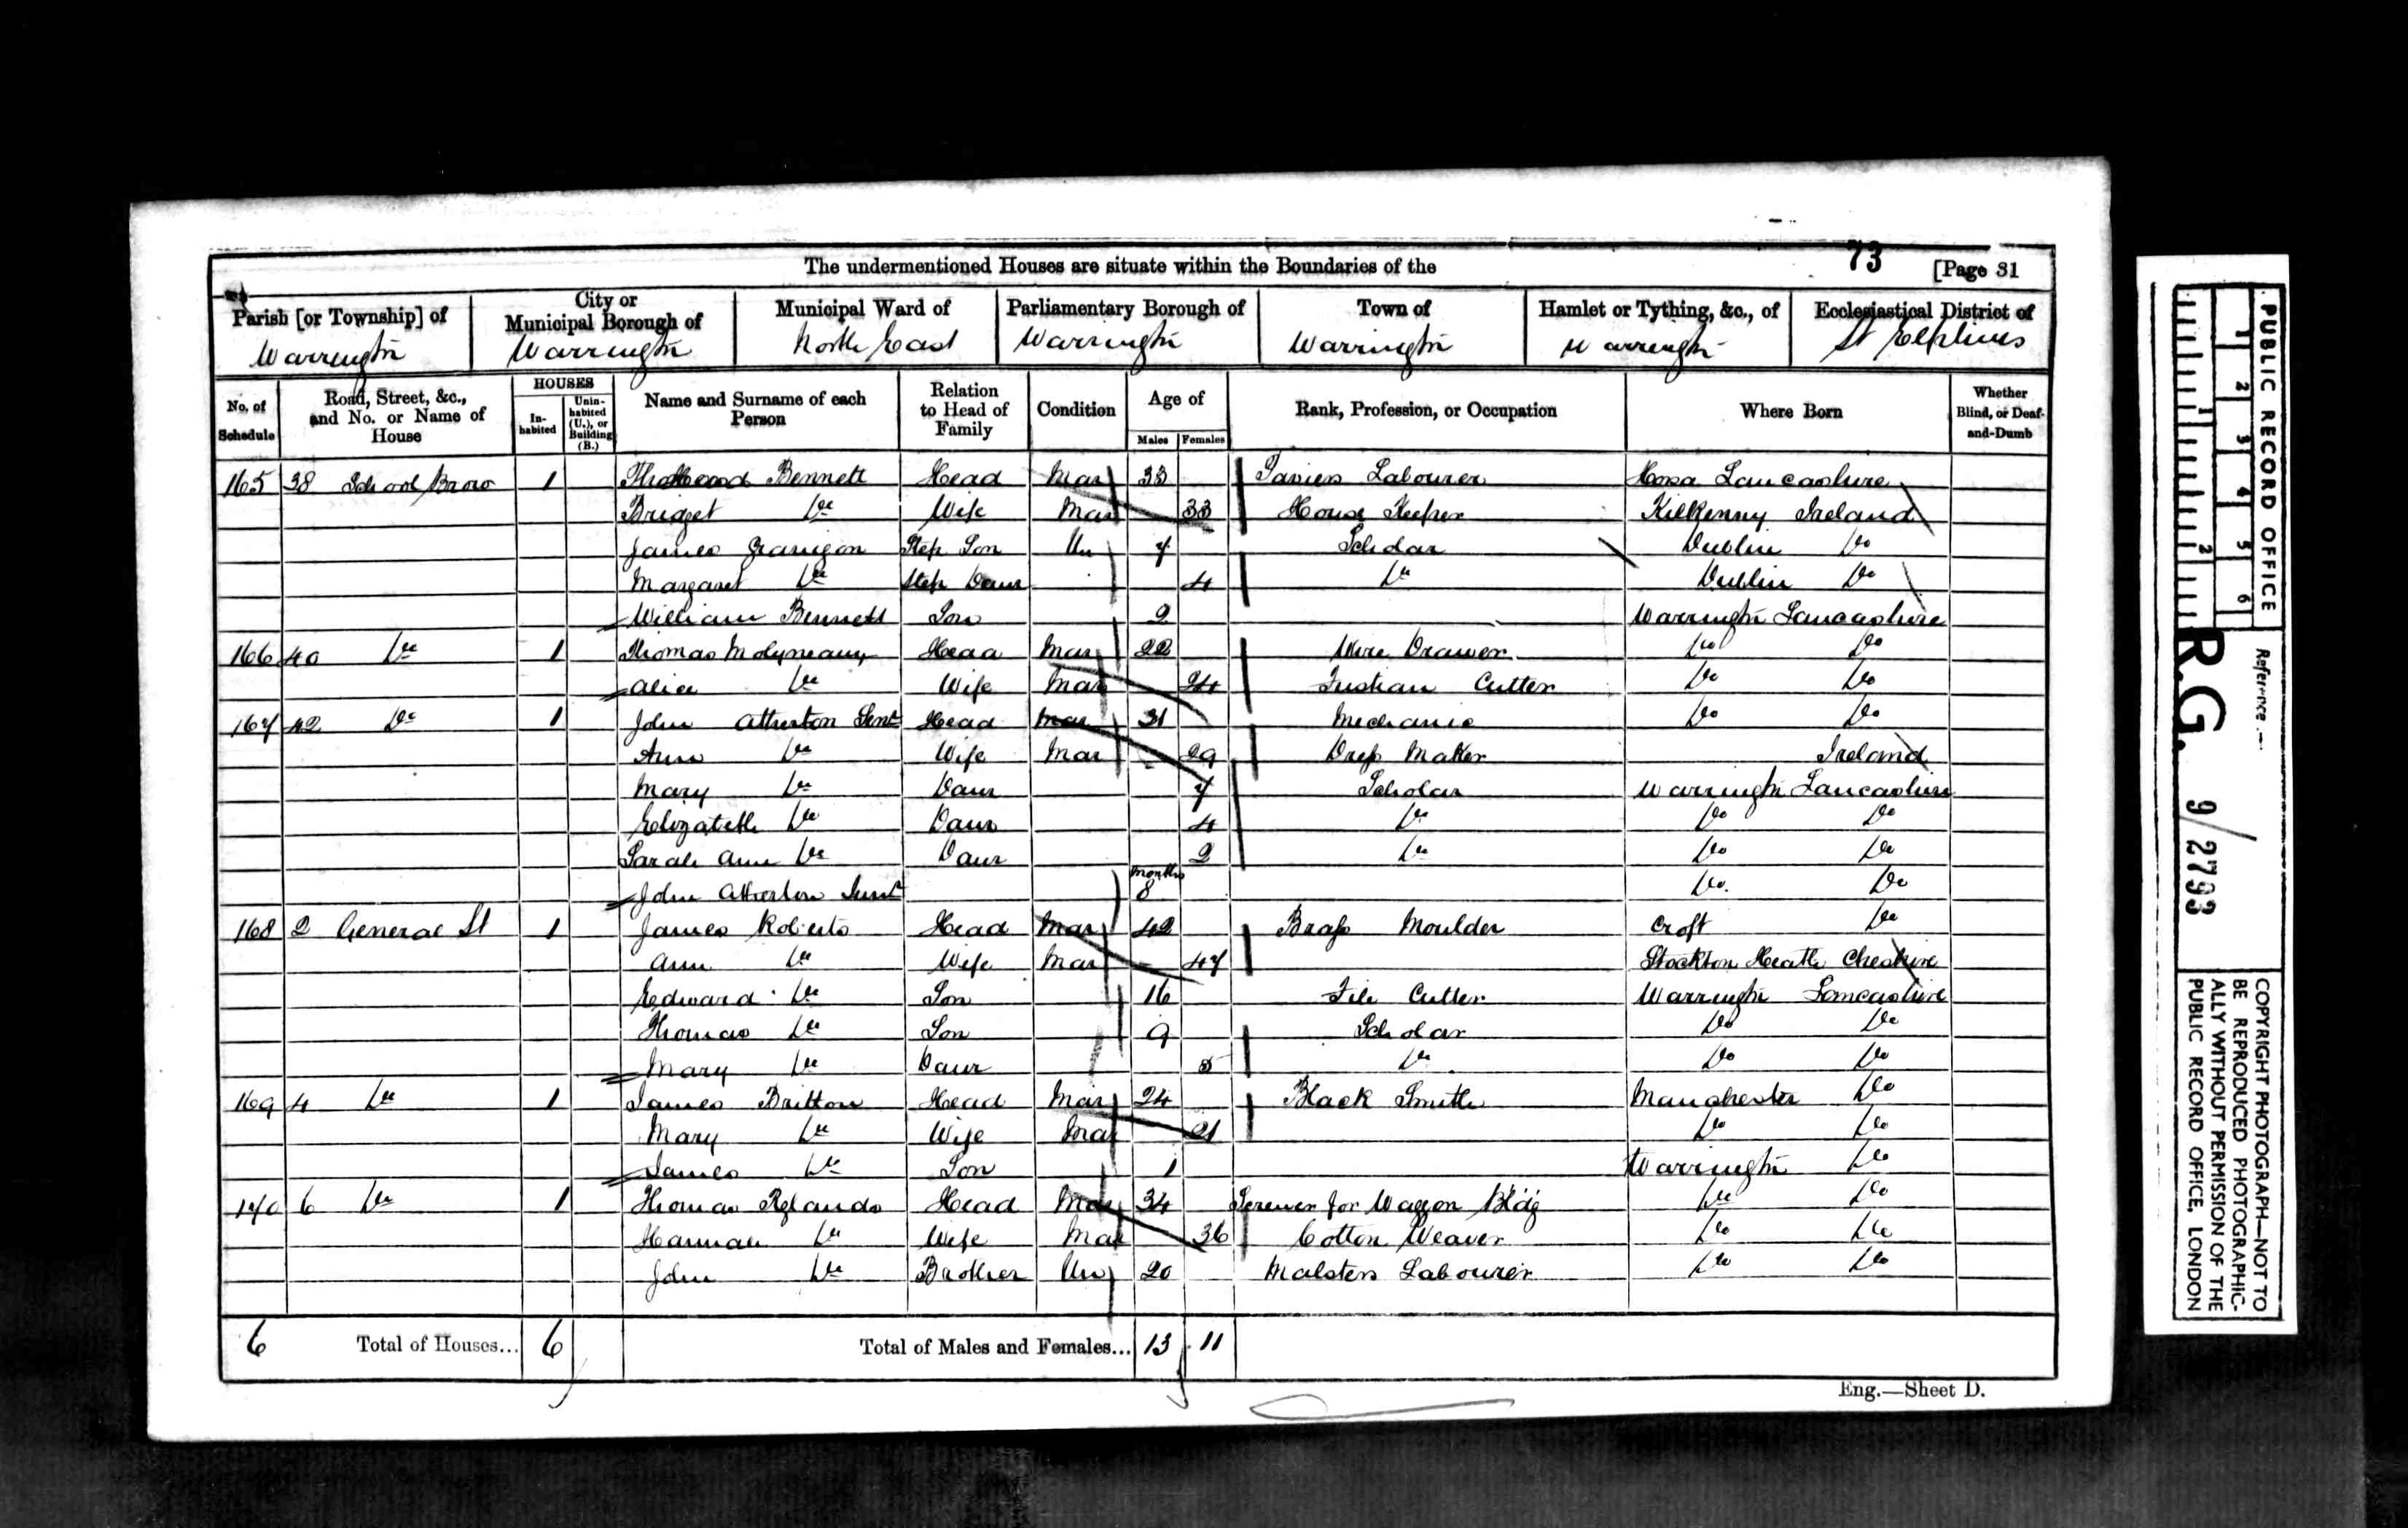 73
The undermentioned Houses are situate within the Boundaries of the [Page 31
Parish [or Township] of City or Municipal Borough of Municipal Ward of Parliamentary Borough of Town of Hamlet or Tything, &c., of Ecclesiastical District of
Warrington Warrington North East Warrington Warrington Warrington St Elphins
No. of Schedule Road, Street, &c., and No. or Name of House HOUSES In-habited Unin-habited (U.), or Building (B.) Name and Surname of each Person Relation to Head of Family Condition Age of Males Females Rank, Profession, or Occupation Where Born Whether Blind, or Deaf-and-Dumb
165 38 School Brow 1 Bennett Head Mar 33 Labourer Lancashire
Bridget Do Wife Mar 33 House Keeper Kilkenny Ireland
James Step Son Un 7 Scholar Dublin Do
Margaret Do Step Daur 4 Do Dublin Do
William Bennett Son 2 Warrington Lancashire
166 40 Do 1 Thomas Molyneaux Head Mar 22 Wire Drawer Do Do
Alice Do Wife Mar 24 Fustian Cutter Do Do
167 42 Do 1 John Atherton Senr Head Mar 31 Mechanic Do Do
Ann Do Wife Mar 29 Dress Maker Ireland
Mary Do Daur 7 Scholar Warrington Lancashire
Elizabeth Do Daur 4 Do Do Do
Sarah Ann Do Daur 2 Do Do Do
John Atherton Junr months 8 Do Do
168 2 General St 1 James Roberts Head Mar 42 Brass Moulder Croft Do
Ann Do Wife Mar 47 Stockton Heath Cheshire
Edward Do Son 16 File Cutter Warrington Lancashire
Thomas Do Son 9 Scholar Do Do
Mary Do Daur 5 Do Do Do
169 4 Do 1 James Britton Head Mar 24 Black Smith Manchester Do
Mary Do Wife Mar 21 Do Do
James Do Son 1 Warrington Do
170 6 Do 1 Thomas Rylands Head Mar 34 Screwer for Waggon Bldg Do Do
Hannah Do Wife Mar 36 Cotton Weaver Do Do
John Do Brother Un 20 Malsters Labourer Do Do
6 Total of Houses... 6 Total of Males and Females... 13 11
Eng.—Sheet D.
PUBLIC RECORD OFFICE
1 2 3 4 5 6
1 2
Reference:-
R.G. 9/2793
COPYRIGHT PHOTOGRAPH—NOT TO
BE REPRODUCED PHOTOGRAPHIC-
ALLY WITHOUT PERMISSION OF THE
PUBLIC RECORD OFFICE, LONDON